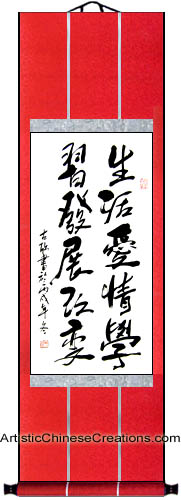 生活愛情學
習發展改變
古碌書於丙戌年冬
ArtisticChineseCreations.com